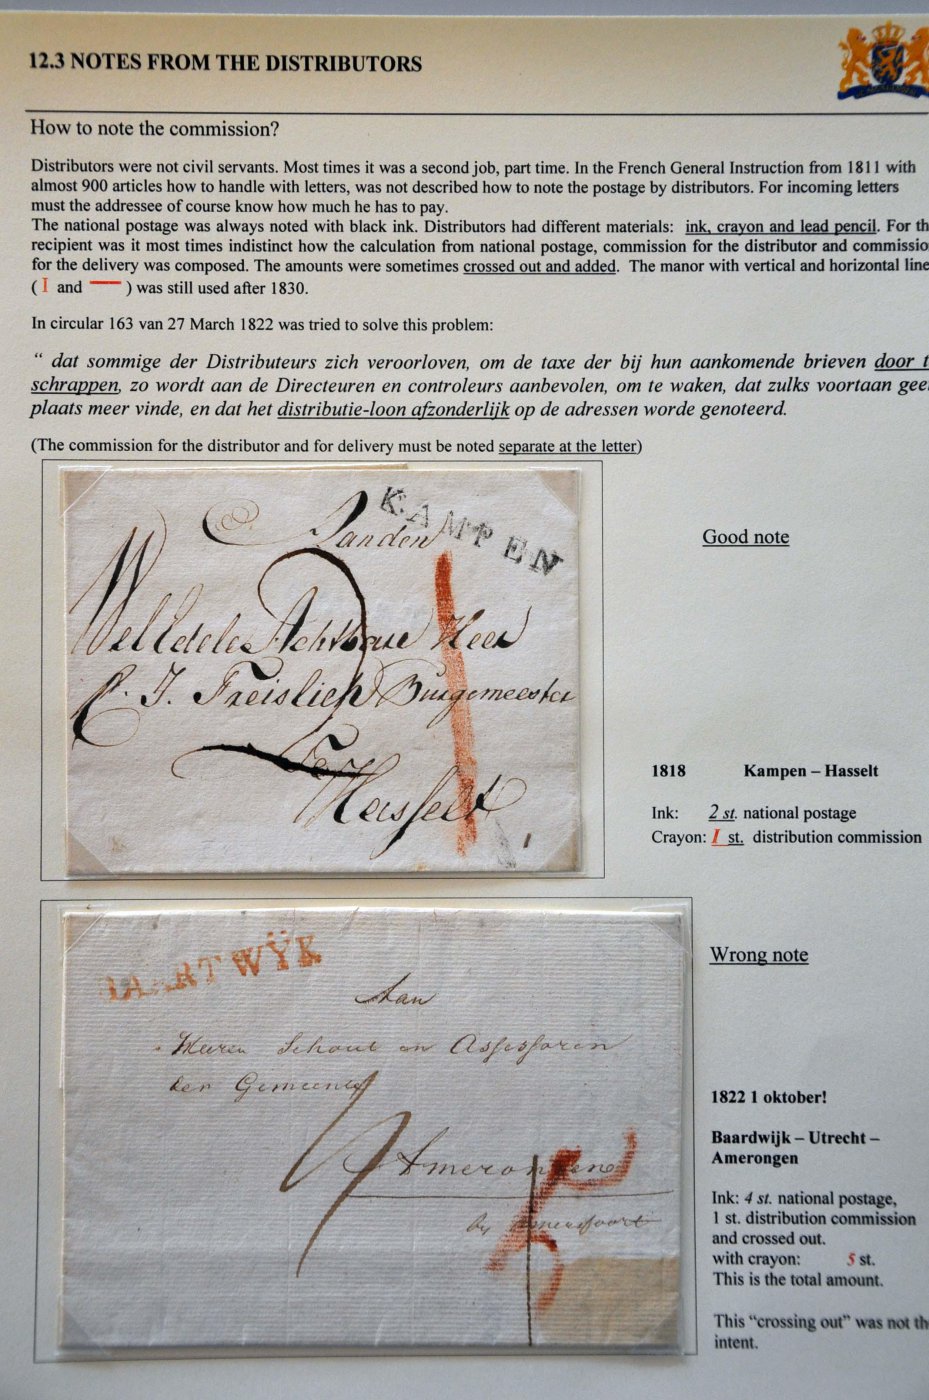 12.3 NOTES FROM THE DISTRIBUTORS
How to note the commission?
Distributors were not civil servants. Most times it was a second job, part time. In the French General Instruction from 1811 with
almost 900 articles how to handle with letters, was not described how to note the postage by distributors. For incoming letters
must the addressee of course know how much he has to pay.
The national postage was always noted with black ink. Distributors had different materials: ink, crayon and lead pencil. For th
recipient was it most times indistinct how the calculation from national postage, commission for the distributor and commissio
for the delivery was composed. The amounts were sometimes crossed out and added. The manor with vertical and horizontal line
( I and — ) was still used after 1830.
In circular 163 van 27 March 1822 was tried to solve this problem:
“ dat sommige der Distributeurs zich veroorloven, om de taxe der bij hun aankomende brieven door t
schrappen, zo wordt aan de Directeuren en controleurs aanbevolen, om te waken, dat zulks voortaan gee
plaats meer vinde, en dat het distributie-loon afzonderlijk op de adressen worde genoteerd.
(The commission for the distributor and for delivery must be noted separate at the letter)
KAMPEN
Landen
WelEdele Achtbare Heer
Burgemeester
Te
Hasselt
Good note
1818 Kampen – Hasselt
Ink: 2 st. national postage
Crayon: I st. distribution commission
BAARTWŸK
Aan
Heeren Schout en Assessoren
der Gemeente
4
Amerongen
by Amersfoort
5
Wrong note
1822 1 oktober!
Baardwijk – Utrecht –
Amerongen
Ink: 4 st. national postage,
1 st. distribution commission
and crossed out.
with crayon: 5 st.
This is the total amount.
This “crossing out” was not th
intent.